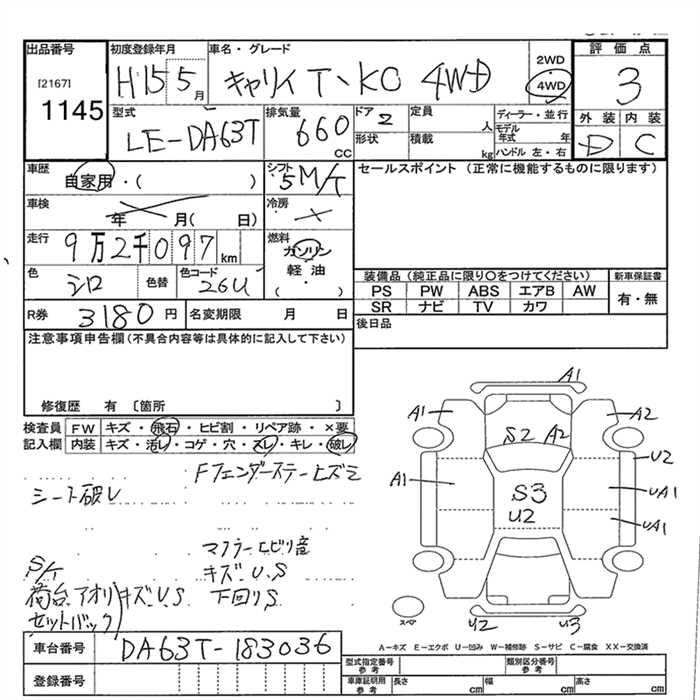 出品番号
[2167]
1145
初度登録年月
H15 5月
車名・グレード
キャリイ T、KC 4WD
2WD
4WD
評価点
3
型式
LE-DA63T
排気量
660
CC
ドア
2
形状
定員
人
積載
kg
ディーラー・並行
モデル年式 年
ハンドル 左・右
外装 内装
D C
車歴
自家用・( )
シフト
5M/T
セールスポイント (正常に機能するものに限ります)
車検
年 月( 日)
冷房
×
走行
9万2千097km
燃料
ガソリン
軽油
( ・ )
色
シロ
色替
色コード
26U
装備品(純正品に限り○をつけてください)
新車保証書
PS PW ABS エアB AW
SR ナビ TV カワ
有・無
R券
3180円
名変期限 月 日
後日品
注意事項申告欄(不具合内容等は具体的に記入して下さい)
修復歴 有 〔箇所 〕
検査員記入欄
FW キズ・飛石・ヒビ割・リペア跡・×要
内装 キズ・汚レ・コゲ・穴・スレ・キレ・破レ
Fフェンダーステーヒズミ
シート破レ
マフラーヒビリ音
S/T
キズ.U.S
荷台.アオリ キズ.U.S
下回りS
セットバック
A1
A1
A2
S2 A2
U2
A1
S3
UA1
U2
UA1
スペア
U2
U3
車台番号
DA63T-183036
A-キズ E-エクボ U-凹み W-補修跡 S-サビ C-腐食 XX-交換済
登録番号
型式指定番号 参考
類別区分番号 参考
車庫証明用 参考
長さ cm
幅 cm
高さ cm